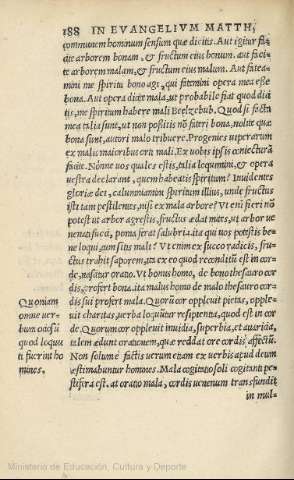 188 IN EVANGELIVM MATTH,
communem hominum sensum quæ dicitis. Aut igitur fa-
cite arborem bonam, & fructum eius bonum. aut faci-
te arborem malam, & fructum eius malum. Aut fatea-
mini me spiritu bono agi, qui fatemini opera mea esse
bona. Aut opera dicite mala, ut probabile fiat quod dici
tis, me spiritum habere mali Beelzebub. Quod si facta
mea talia sunt, ut non possitis nō fateri bona, nolite quæ
bona sunt, autori malo tribuere. Progenies uiperarum
ex malis maioribus orti mali. Ex uobis ipsis cōiecturā
facite. Nonne uos quales estis, talia loquimini, & opera
uestra declarant, quem habeatis spiritum? Inuidentes
gloriæ dei, calumniamini spiritum illius, unde fructus
isti tam pestilentes, nisi ex mala arbore? Vt enī fieri nō
potest ut arbor agrestis, fructus ædat mites, ut arbor ue
nenata succū, poma ferat salubria: ita qui uos potestis be
ne loqui, cum sitis mali? Vt enim ex succo radicis, fru-
ctus trahit saporem, ita ex eo quod reconditū est in cor-
de, nascitur oratio. Vt bonus homo, de bono thesauro cor
dis, profert bona, ita malus homo de malo thesauro cor-
dis sui profert mala. Quorū cor oppleuit pietas, opple-
uit charitas, uerba loquūtur respipentia, quod est in cor
de. Quorum cor oppleuit inuidia, superbia, et auaritia,
talem ædunt orationem, quæ reddat ore cordis affectū.
Non solum è factis uerum etiam ex uerbis apud deum
æstimabuntur homines. Mala cogitatio soli cogitanti pe-
stifera est. at oratio mala, cordis uenenum transfundit
in mal-
Quoniam
omne uer-
bum ociosū
quod locuu
ti fuerint ho
mines.
Ministerio de Educación, Cultura y Deporte